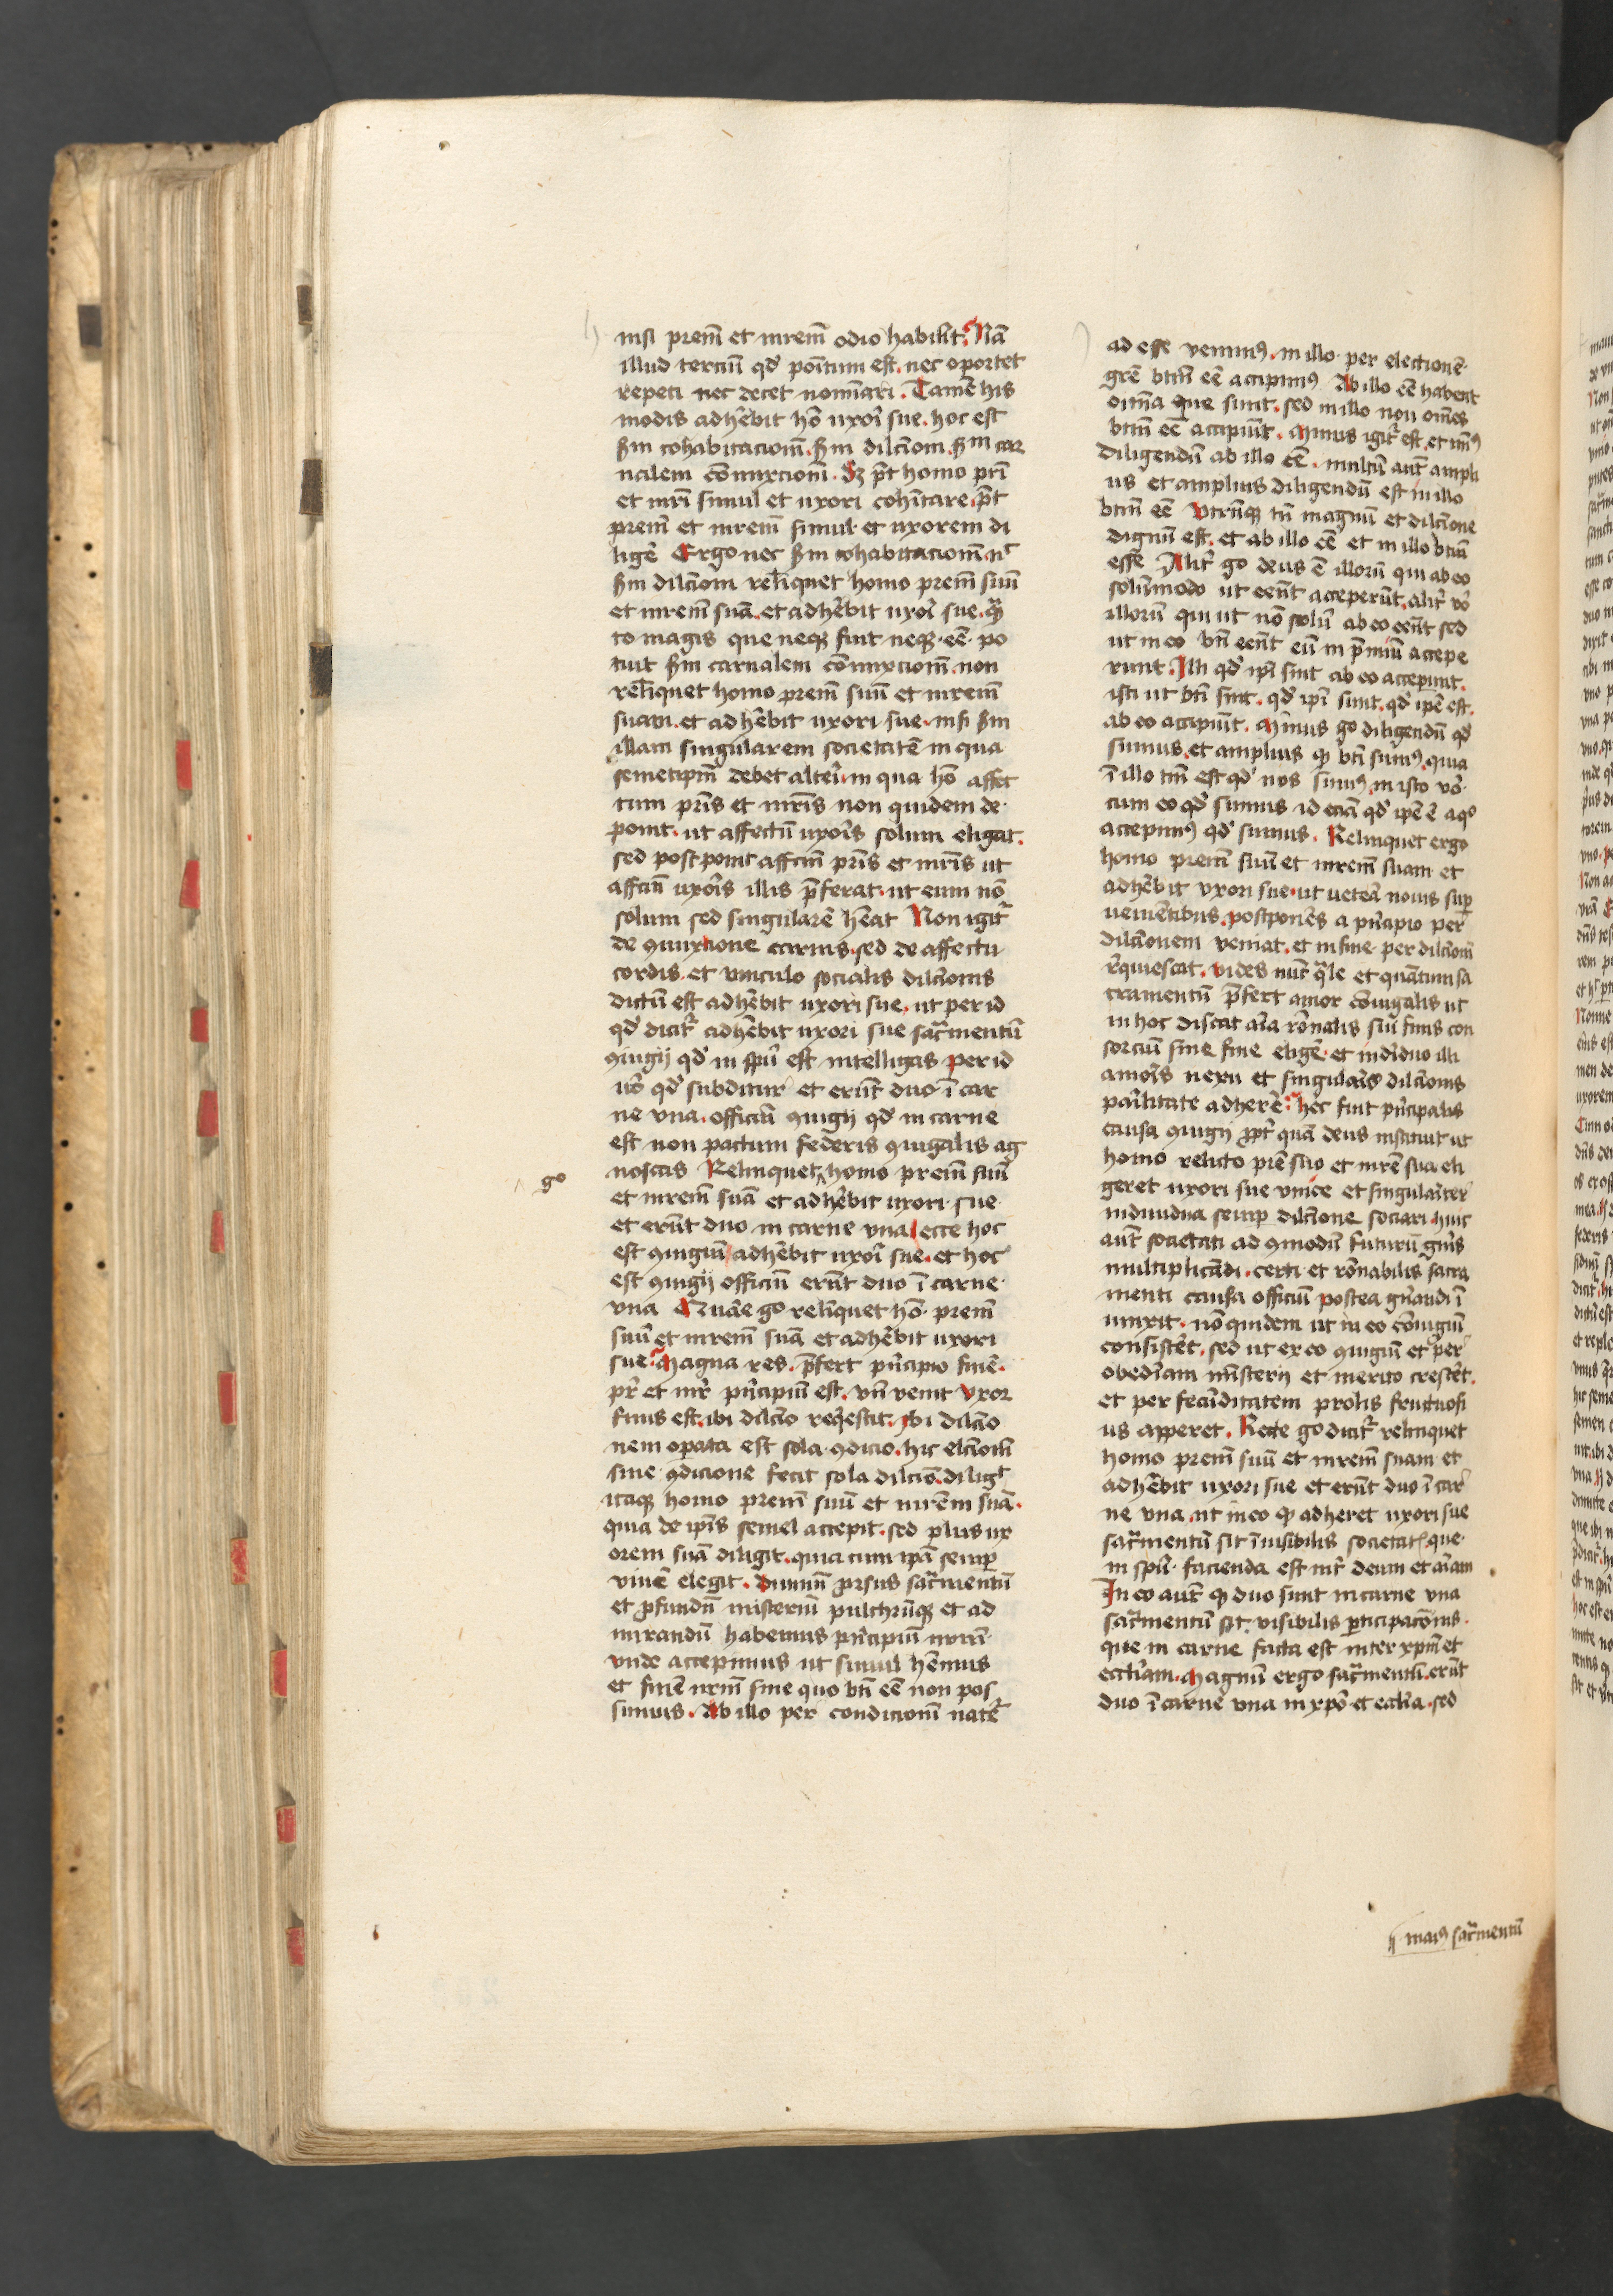 nisi prem̄ et mrem̄ odio habu̾it. Nā
illud terciū qd̓ poītum est. nec oportet
repeti nec decet nomīari. Tamē his
modis adhēbit hō uxor̓ sue. hoc est
sm̄ cohabitacionē. sm̄ dilc̄iom. sm̄ car
nalem cōmixcionē. Sz pt̄ homo pr̄i
et mr̄i simul et uxori cohītare. pt̄
prem̄ et mrem̄ simul et uxorem di
liger̄ Ergo nec sm̄ cohabitacionē. nc̄
sm̄ dilc̄iom relīquet homo prem̄ suū
et mrem̄ suā. et adhēbit uxor̓ sue. qͣn
to magis que neqꝫ fuit neqꝫ eē. po
tuit sm̄ carnalem cōmixcionē. non
relīquet homo prem̄ suū et mrem̄
suam. et adhēbit uxori sue. nisi sm̄
illam singularem societatē in qua
semetipm̄ debet alteri. in qua hō affec
tum pr̄is et mr̄is non quidem de
ponit. ut affectū uxor̄is solum eligat.
sed postponit affc̄m pr̄is et mr̄is ut
affc̄m uxor̄is illis p̄ferat. ut eum nō
solum sed singularē hēat Non igit̾
de ꝯmixtione carnis. sed de affectu
cordis. et vinculo socialis dilc̄ionis
dictū est adhēbit uxori sue. ut per id
qd̓ dicit̾ adhēbit uxori sue sac̾mentū
ꝯiugij qd̓ in sp̄u est intelligas per id
uō qd̓ subditur et erūt duo ī car
ne vna. officiū ꝯiugij qd̓ in carne
est non pactum federis ꝯiugalis ag
noscas Relinquet homo prem̄ suū
go
et mrem̄ suā et adhēbit uxori sue
et erūt duo in carne vna ecce hoc
est ꝯiugiū adhēbit uxor̓ sue. et hoc
est ꝯiugij officiū erūt duo ī carne
vna Quare go relīquet hō prem̄
suū et mrem̄ suā et adhēbit uxori
sue. Magna res. p̄fert pn̄cipio finē.
pr̄ et mr̄ pn̄cipiū est. vn̄ venit vxor
finis est. ibi dilc̄io reqͥescit. ibi dilc̄io
nem operata est sola ꝯdicio. hic elc̄ionē
sine ꝯdicione fecit sola dilc̄io. diligt̄
itaqꝫ homo prem̄ suū et mrem̄ suā.
quia de ip̄is semel accepit. sed plus ux
orem suā diligit. quia cum ip̄a semp̱
viuē elegit. diuinū prsus sac̾mentū
et ꝓfundū misteriū pulchrūqꝫ et ad
mirandū habemus pn̄cipiū nrm̄
vnde accepimus ut simus hēmus
et finē nrm̄ sine quo bt̄i eē non pos
simus. Ab illo per condicionē nater̄
ad esse venimꝰ. in illo per electionē
grē btm̄ eē accipimꝰ Ab illo eē habent
oīa que sunt. sed in illo non om̄es
btm̄ eē accipiūt. Minus igit̾ est et min̄ꝰ
diligendū ab illo eē. multū aut̄ ampli
us et amplius diligendū est in illo
btm̄ eē Vtrūqꝫ tn̄ magnū et dilc̄ione
dignū est. et ab illo eē et in illo btm̄
esse Alit̾ go deus ē illorū qui ab eo
solūmodo ut eent̄ acceperūt. alit̾ vō
illorū qui ut nō solū ab eo eent̄ sed
ut in eo bt̄i eent̄ eū in p̄miū accepe
runt. Illi qd̓ ip̄i sint ab eo accepunt.
isti ut bt̄i sint. qd̓ ip̄i sunt. qd̓ ip̄e est.
ab eo accipiūt. Minus go diligendū qd̓
sumus. et amplius ꝙ bt̄i sumꝰ. quia
ī illo tm̄ est qd̓ nos sumꝰ. in isto vō.
cum eo qd̓ sumus id eciā qd̓ ip̄e ē a qͦ
accepimꝰ qd̓ sumus. Relinquet ergo
homo prem̄ suū et mrem̄ suam et
adhēbit vxori sue. ut veterā nouis sup̱
venientibus. postponēs a pn̄cipio per
dilc̄ionem veniat. et in fine per dilc̄ionē
rq̄uiescat. vides nūc qͣle et quātum sa
cramentū p̄fert amor cōiugalis ut
in hoc discat aīa rōnalis sui finis con
sorciū sine fine eligē. et indīduo illi
amor̄is nexu et singular̄is dilc̄ionis
par̄ilitate adherē. hec fuit pn̄cipalis
causa ꝯiugij ppt̾ quā deus instituit ut
homo relicto pr̄e suo et mr̄e sua eli
geret uxori sue vnice et singular̄iter
indiuidua semp̱ dilc̄ione sociari. huic
aut̄ societati ad ꝯmodū futurū gn̄is
multiplicādi. certi et rōnabilis sacra
menti causa officiū postea gn̄andi ī
iunxit. nō quidem ut in eo cōiugiū
consistēt. sed ut ex eo ꝯiugiū et per
obedīcam mīsterij et merito crescēt.
et per fecūditatem prolis fructuosi
us apperet. Recte go dicit̾ relinquet
homo prem̄ suū et mrem̄ suam et
adhēbit uxori sue et erūt duo ī car
ne vna. ut in eo ꝙ adheret uxori sue
sac̾mentū sit īuisibilis societatꝭ. que
in sp̄u facienda est int̾ deum et aīam
In eo aut̄ ꝙ duo sunt in carne vna
sac̾mentū sit visibilis p̱ticipac̄onis.
que in carne facta est inter xpm̄ et
eccl̄iam. Magnū ergo sac̾mentū. erūt
duo ī carne vna in xpō et eccl̄ia. sed
maiꝰ sac̾mentū